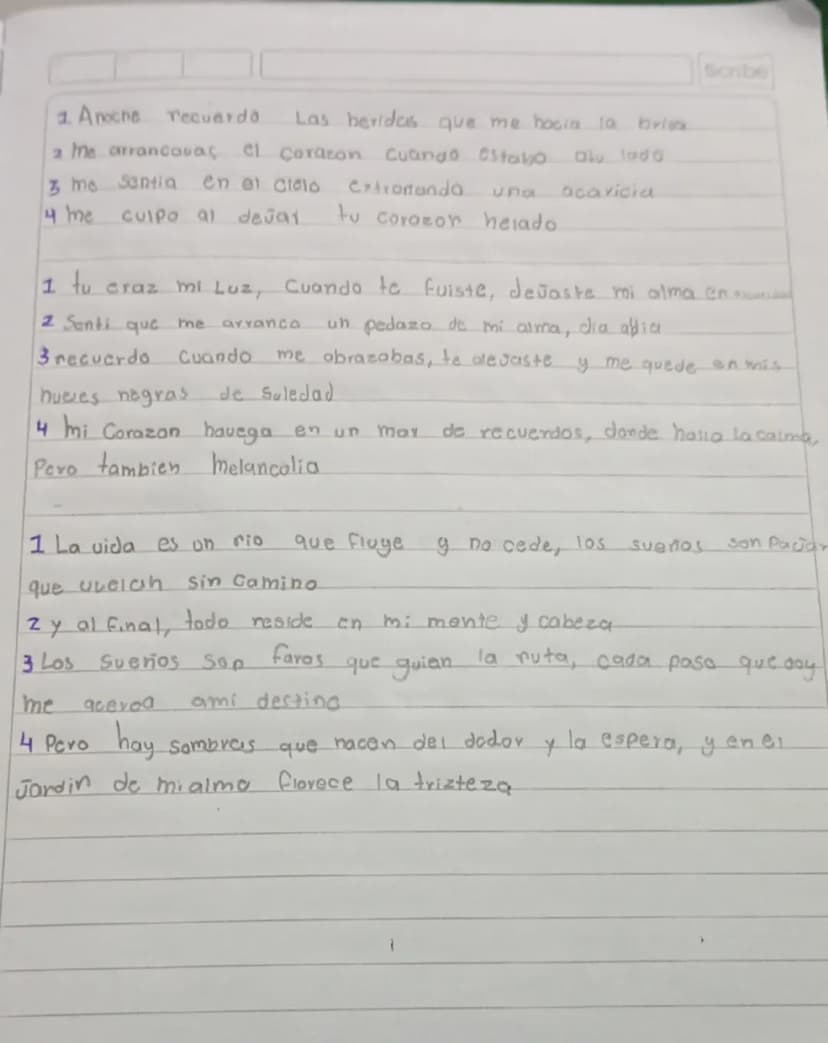 Scribe
1 Anoche recuerdo Las heridas que me hacia la brisa
2 me arrancavas el corazon cuando estabo au lado
3 me sentia en el cielo extronando una acaricia
4 me culpo al dejar tu corozon helado
1 tu eraz mi Luz, cuando te fuiste, dejaste mi alma en
2 Senti que me arranco un pedazo de mi alma, dia a dia
3 recuerdo cuando me abrazabas, te alejaste y me quede en mis
nueves negras de Soledad
4 mi Corazon navega en un mar de recuerdos, donde hallo la calma,
Pero tambien melancolia
1 La vida es un rio que fluye y no cede, los sueños son
que vuelan sin camino
2 y al final, todo reside en mi mente y cabeza
3 Los sueños son faros que guian la ruta, cada paso que doy
me acerca ami destino
4 Pero hay sombras que nacen del dodor y la espera, y en el
Jardin de mi alma florece la trizteza